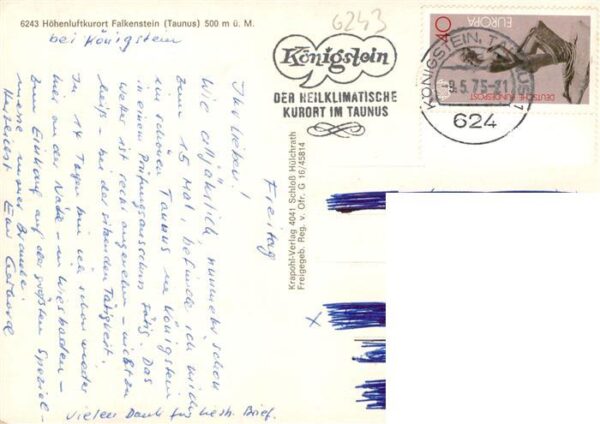 6243 Höhenluftkurort Falkenstein (Taunus) 500 m ü. M.
bei Königstein
6243
Königstein
DER HEILKLIMATISCHE
KURORT IM TAUNUS
KÖNIGSTEIN, TAUNUS 1
9.5.75-21
624
40
EUROPA
DEUTSCHE BUNDESPOST
Krapohl-Verlag 4041 Schloß Hülchrath
Freigegeb. Reg. v. Ofr. G 16/45814
Freitag
Ihr Lieben!
Wie alljährlich, nunmehr schon
zum 15 Mal, befinde ich mich
im schönen Taunus in Königstein
in einem Prüfungsausschuss tätig. Das
Wetter ist recht angenehm - nicht zu
heiß - bei der sitzenden Tätigkeit.
In 14 Tagen bin ich schon wieder
hier in der Nähe - in Wiesbaden -
zum Einkauf auf der größten Spezial-
messe unserer Branche.
Herzlichst Euer Gerhard
Vielen Dank für den Brief.
X